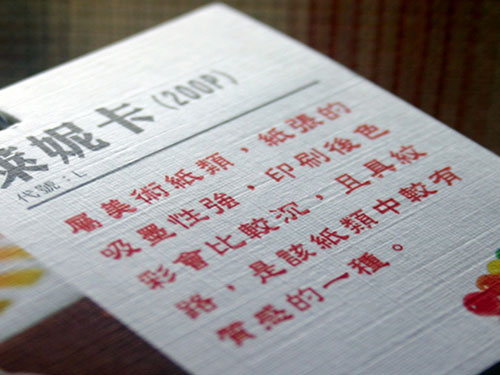 萊妮卡(200P)
代號：L
屬美術紙類，紙張的
吸墨性強，印刷後色
彩會比較沉，且具紋
路，是該紙類中較有
質感的一種。